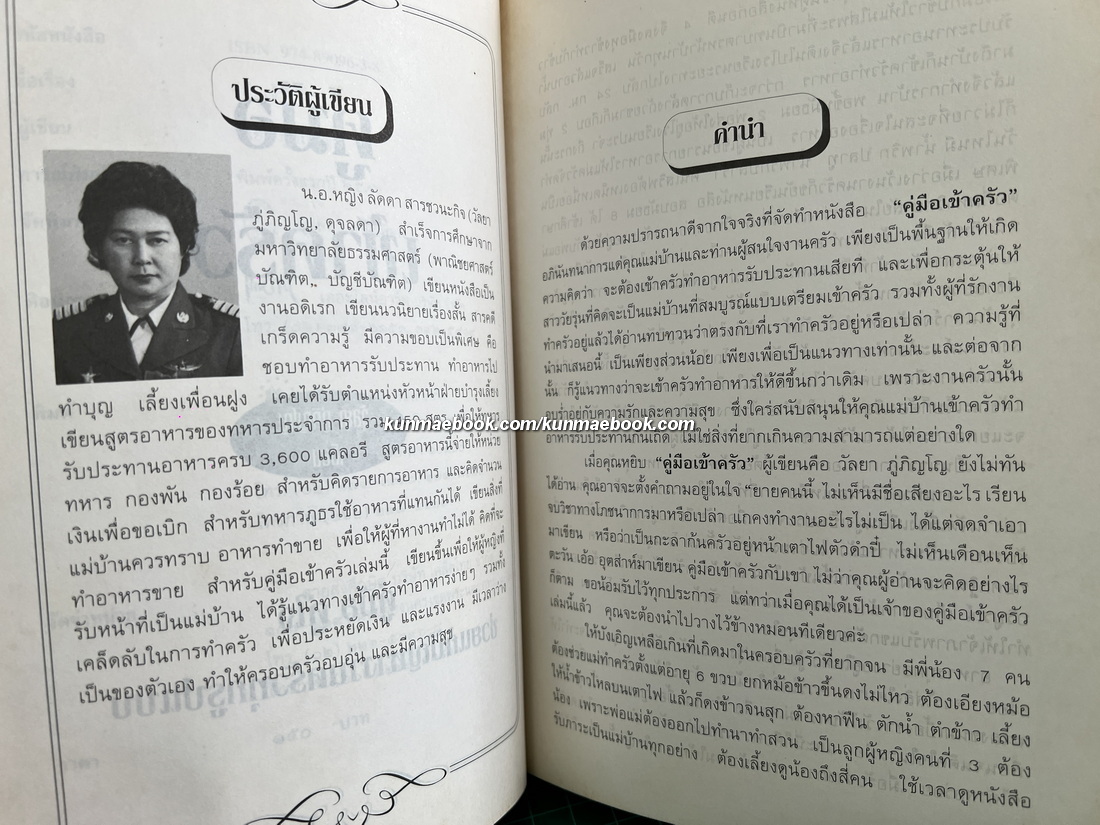 ประวัติผู้เขียน
น.อ.หญิง ลัดดา สารชวนะกิจ (วัลยา
ภู่ภิญโญ, ดุจลดา) สำเร็จการศึกษาจาก
มหาวิทยาลัยธรรมศาสตร์ (พาณิชยศาสตร์
บัณฑิต, บัญชีบัณฑิต) เขียนหนังสือเป็น
งานอดิเรก เขียนนวนิยายเรื่องสั้น สารคดี
เกร็ดความรู้ มีความชอบเป็นพิเศษ คือ
ชอบทำอาหารรับประทาน ทำอาหารไป
ทำบุญ เลี้ยงเพื่อนฝูง เคยได้รับตำแหน่งหัวหน้าฝ่ายบำรุงเลี้ยง
เขียนสูตรอาหารของทหารประจำการ รวม 150 สูตร เพื่อให้ทหาร
รับประทานอาหารครบ 3,600 แคลอรี สูตรอาหารนี้จ่ายให้หน่วย
ทหาร กองพัน กองร้อย สำหรับคิดรายการอาหาร และคิดจำนวน
เงินเพื่อขอเบิก สำหรับทหารภูธรใช้อาหารที่แทนกันได้ เขียนสิ่งที่
แม่บ้านควรทราบ อาหารทำขาย เพื่อให้ผู้ที่หางานทำไม่ได้ คิดที่จะ
ทำอาหารขาย สำหรับคู่มือเข้าครัวเล่มนี้ เขียนขึ้นเพื่อให้ผู้หญิงที่
รับหน้าที่เป็นแม่บ้าน ได้รู้แนวทางเข้าครัวทำอาหารง่ายๆ รวมทั้ง
เคล็ดลับในการทำครัว เพื่อประหยัดเงิน และแรงงาน มีเวลาว่าง
เป็นของตัวเอง ทำให้ครอบครัวอบอุ่น และมีความสุข
คำนำ
ด้วยความปรารถนาดีจากใจจริงที่จัดทำหนังสือ "คู่มือเข้าครัว"
อภินันทนาการแด่คุณแม่บ้านและท่านผู้สนใจงานครัว เพียงเป็นพื้นฐานให้เกิด
ความคิดว่า จะต้องเข้าครัวทำอาหารรับประทานเสียที และเพื่อกระตุ้นให้
สาววัยรุ่นที่คิดจะเป็นแม่บ้านที่สมบูรณ์แบบเตรียมเข้าครัว รวมทั้งผู้ที่รักงาน
ทำครัวอยู่แล้วได้อ่านทบทวนว่าตรงกับที่เราทำครัวอยู่หรือเปล่า ความรู้ที่
นำมาเสนอนี้ เป็นเพียงส่วนน้อย เพียงเพื่อเป็นแนวทางเท่านั้น และต่อจาก
นั้น ก็รู้แนวทางว่าจะเข้าครัวทำอาหารให้ดีขึ้นกว่าเดิม เพราะงานครัวนั้น
อบร่ำอยู่กับความรักและความสุข ซึ่งใคร่สนับสนุนให้คุณแม่บ้านเข้าครัวทำ
อาหารรับประทานกันเถิด ไม่ใช่สิ่งที่ยากเกินความสามารถแต่อย่างใด
เมื่อคุณหยิบ "คู่มือเข้าครัว" ผู้เขียนคือ วัลยา ภู่ภิญโญ ยังไม่ทัน
ได้อ่าน คุณอาจจะตั้งคำถามอยู่ในใจ "ยายคนนี้ ไม่เห็นมีชื่อเสียงอะไร เรียน
จบวิชาทางโภชนาการมาหรือเปล่า แกคงทำงานอะไรไม่เป็น ได้แต่จดจำเอา
มาเขียน หรือว่าเป็นกะลาก้นครัวอยู่หน้าเตาไฟตัวดำปี๋ ไม่เห็นเดือนเห็น
ตะวัน เอ้อ อุตส่าห์มาเขียน คู่มือเข้าครัวกับเขา ไม่ว่าคุณผู้อ่านจะคิดอย่างไร
ก็ตาม ขอน้อมรับไว้ทุกประการ แต่ทว่าเมื่อคุณได้เป็นเจ้าของคู่มือเข้าครัว
เล่มนี้แล้ว คุณจะต้องนำไปวางไว้ข้างหมอนทีเดียวค่ะ
ให้บังเอิญเหลือเกินที่เกิดมาในครอบครัวที่ยากจน มีพี่น้อง 7 คน
ต้องช่วยแม่ทำครัวตั้งแต่อายุ 6 ขวบ ยกหม้อข้าวขึ้นดงไม่ไหว ต้องเอียงหม้อ
ให้น้ำข้าวไหลบนเตาไฟ แล้วก็ดงข้าวจนสุก ต้องหาฟืน ตักน้ำ ตำข้าว เลี้ยง
น้อง เพราะพ่อแม่ต้องออกไปทำนาทำสวน เป็นลูกผู้หญิงคนที่ 3 ต้อง
รับภาระเป็นแม่บ้านทุกอย่าง ต้องเลี้ยงดูน้องถึงสี่คน ใช้เวลาดูหนังสือ
kunmaebook.com/kunmaebook.com